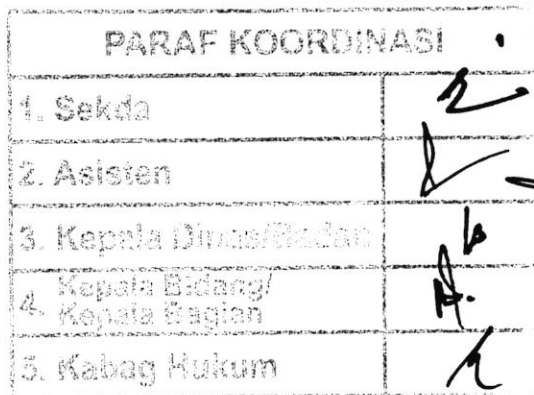 PARAF KOORDINASI
1. Sekda
2. Asisten
3. Kepala Dinas/Badan
4. Kepala Bidang/
Kepala Bagian
5. Kabag Hukum